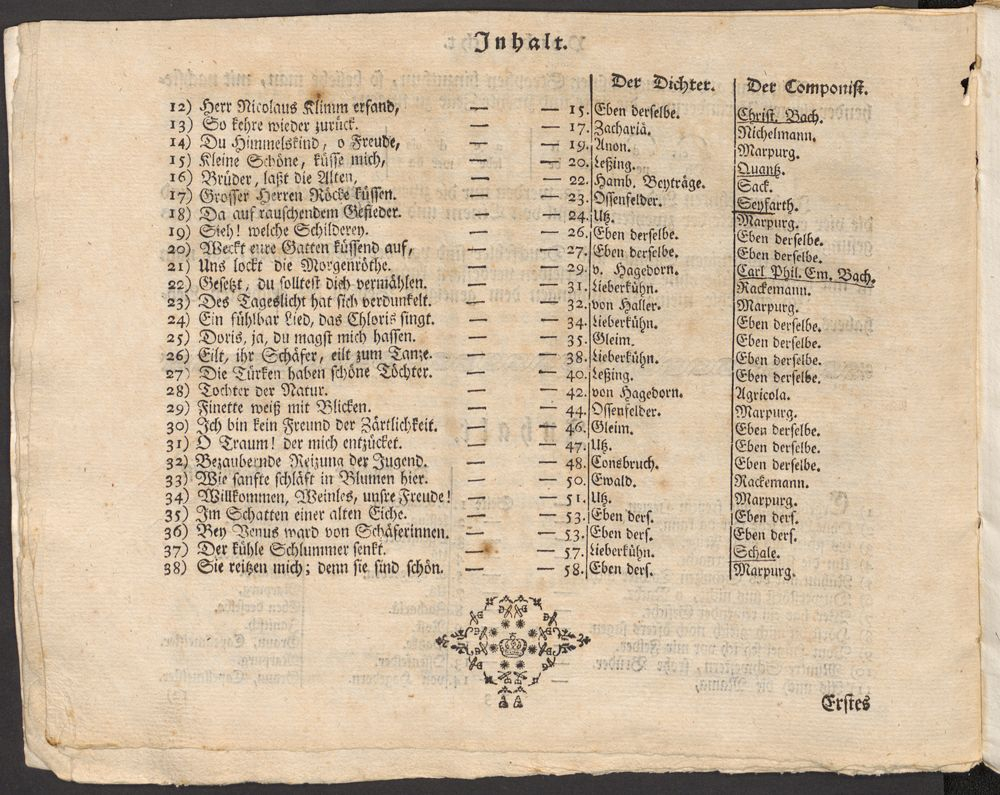 Inhalt.
Der Dichter. Der Componist.
12) Herr Nicolaus Klimm erfand, — — 15. Eben derselbe. Christ. Bach.
13) So kehre wieder zurück. — — 17. Zachariä. Nichelmann.
14) Du Himmelskind, o Freude, — — 19. Anon. Marpurg.
15) Kleine Schöne, küsse mich, — — 20. Leßing. Quantz.
16) Brüder, laßt die Alten, — — 22. Hamb. Beyträge. Sack.
17) Grosser Herren Röcke küssen. — — 23. Ossenfelder. Seyfarth.
18) Da auf rauschendem Gefieder. — — 24. Utz. Marpurg.
19) Sieh! welche Schilderey. — — 26. Eben derselbe. Eben derselbe.
20) Weckt eure Gatten küssend auf, — — 27. Eben derselbe. Eben derselbe.
21) Uns lockt die Morgenröthe. — — 29. v. Hagedorn. Carl Phil. Em. Bach.
22) Gesetzt, du solltest dich vermählen. — — 31. Lieberkühn. Rackemann.
23) Des Tageslicht hat sich verdunkelt. — — 32. von Haller. Marpurg.
24) Ein fühlbar Lied, das Chloris singt. — — 34. Lieberkühn. Eben derselbe.
25) Doris, ja, du magst mich hassen. — — 35. Gleim. Eben derselbe.
26) Eilt, ihr Schäfer, eilt zum Tanze. — — 38. Lieberkühn. Eben derselbe.
27) Die Türken haben schöne Töchter. — — 40. Leßing. Eben derselbe.
28) Tochter der Natur. — — 42. von Hagedorn. Agricola.
29) Finette weiß mit Blicken. — — 44. Ossenfelder. Marpurg.
30) Ich bin kein Freund der Zärtlichkeit. — — 46. Gleim. Eben derselbe.
31) O Traum! der mich entzücket. — — 47. Utz. Eben derselbe.
32) Bezaubernde Reizung der Jugend. — — 48. Consbruch. Eben derselbe.
33) Wie sanfte schläft in Blumen hier. — — 50. Ewald. Rackemann.
34) Willkommen, Weinles, unsre Freude! — — 51. Utz. Marpurg.
35) Im Schatten einer alten Eiche. — — 53. Eben ders. Eben ders.
36) Bey Venus ward von Schäferinnen. — — 53. Eben ders. Eben ders.
37) Der kühle Schlummer senkt. — — 57. Lieberkühn. Schale.
38) Sie reitzen mich; denn sie sind schön. — — 58. Eben ders. Marpurg.
Erstes